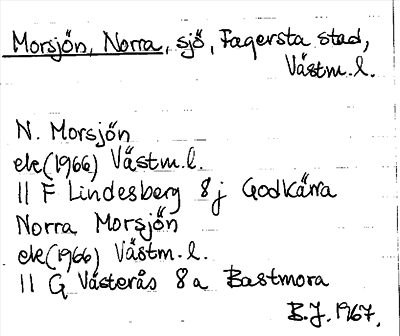 Morsjön, Norra, sjö, Fagersta stad,
Västm.l.
N. Morsjön
ek(1966) Västm.l.
11 F Lindesberg 8j Godkärra
Norra Morsjön
ek(1966) Västm.l.
11 G Västerås 8a Bastmora
B.J. 1967.